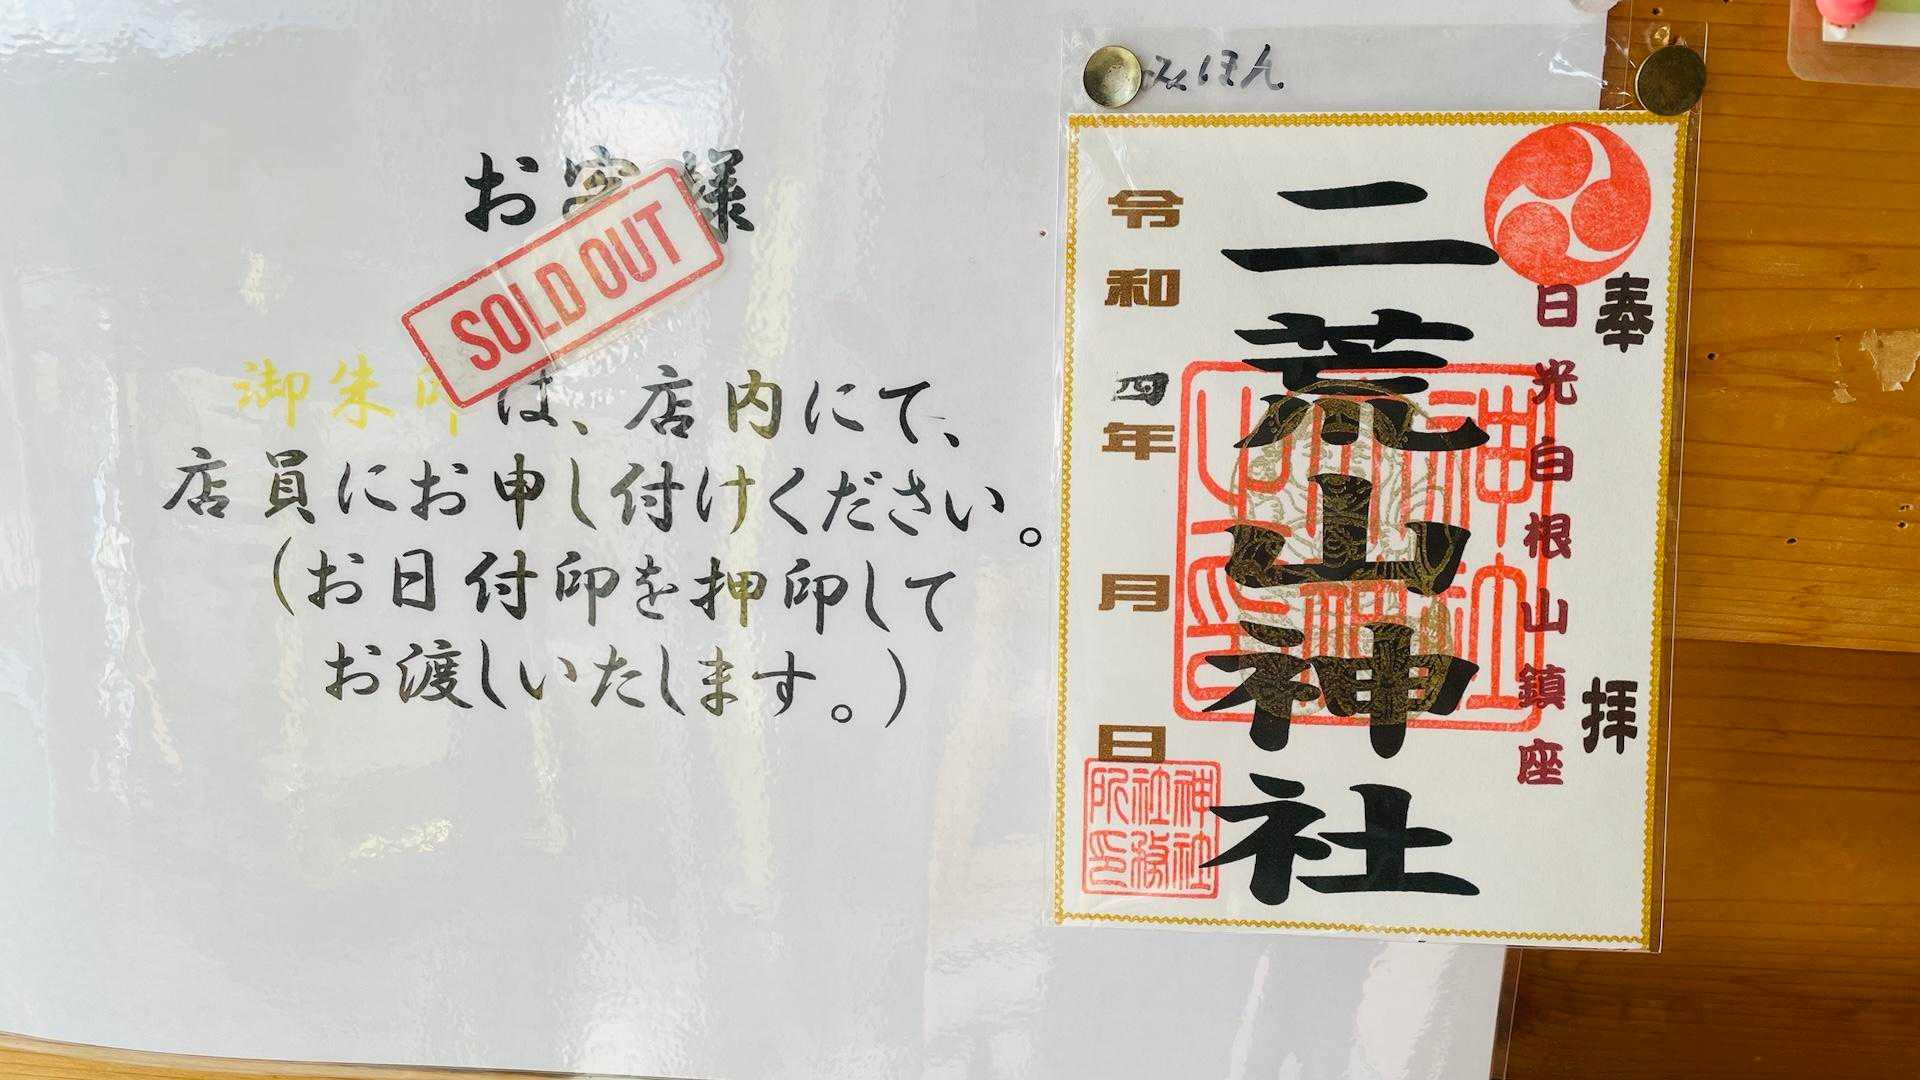 お客様
SOLD OUT
御朱印は、店内にて、
店員にお申し付けください。
(お日付印を押印して
お渡しいたします。)
みほん
奉拝
日光白根山鎮座
二荒山神社
令和四年 月 日
神社
社務
所印